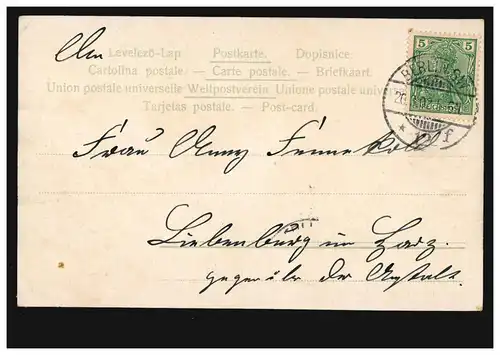 An
Levelező-Lap Postkarte. Dopisnice.
Cartolina postale. — Carte postale. — Briefkaart.
Union postale universelle Weltpostverein Unione postale univ
Tarjetas postale. — Post-card.
5 5
BERLIN S.W.
* 12 f
Frau Anny
Liebenburg im Harz.
gegenüber der Anstalt.